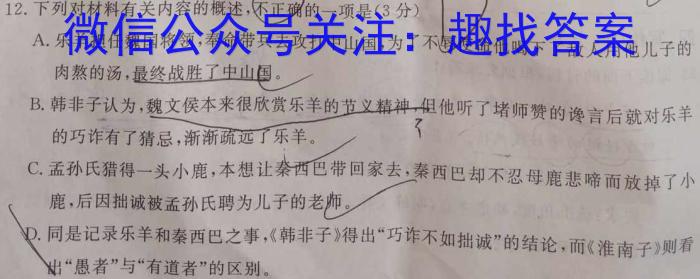 12.下列对材料有关内容的概述,不正确的一项是(3分)
微信公众号关注:趣找答案
A.乐羊担任魏国将领,奉命带兵去攻打中山国,为了不辱使命他喝下了敌人用他儿子的
肉熬的汤,最终战胜了中山国。
B.韩非子认为,魏文侯本来很欣赏乐羊的节义精神,但他听了堵师赞的谗言后就对乐羊
的巧诈有了猜忌,渐渐疏远了乐羊。
C.孟孙氏猎得一头小鹿,本想让秦西巴带回家去,秦西巴却不忍母鹿悲啼而放掉了小
鹿,后因拙诚被孟孙氏聘为儿子的老师。
D.同是记录乐羊和秦西巴之事,《韩非子》得出“巧诈不如拙诚”的结论,而《淮南子》则看
出“愚者”与“有道者”的区别。